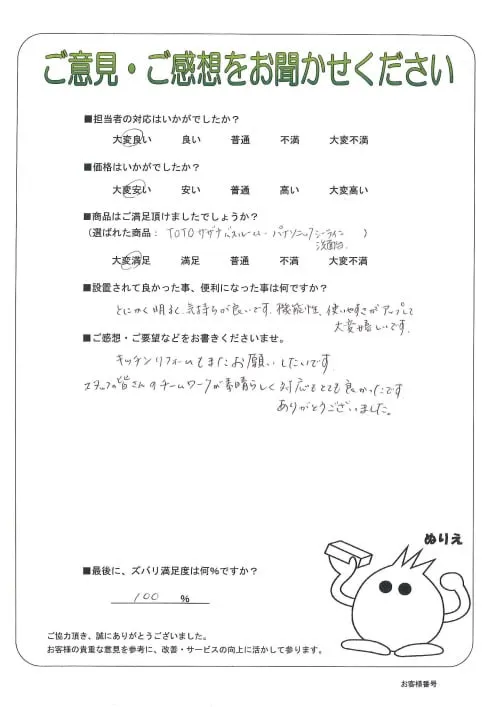 ご意見・ご感想をお聞かせください
■担当者の対応はいかがでしたか?
大変良い 良い 普通 不満 大変不満
■価格はいかがでしたか?
大変安い 安い 普通 高い 大変高い
■商品はご満足頂けましたでしょうか?
(選ばれた商品: TOTO サザナバスルーム・パナソニックシーライン )
洗面台
大変満足 満足 普通 不満 大変不満
■設置されて良かった事、便利になった事は何ですか?
とにかく明るく気持ちが良いです。機能性、使いやすさがアップして
大変嬉しいです。
■ご感想・ご要望などをお書きくださいませ。
キッチンリフォームもまたお願いしたいです
スタッフの皆さんのチームワークが素晴らしく対応もとても良かったです
ありがとうございました。
ぬりえ
■最後に、ズバリ満足度は何%ですか?
100 %
ご協力頂き、誠にありがとうございました。
お客様の貴重な意見を参考に、改善・サービスの向上に活かして参ります。
お客様番号